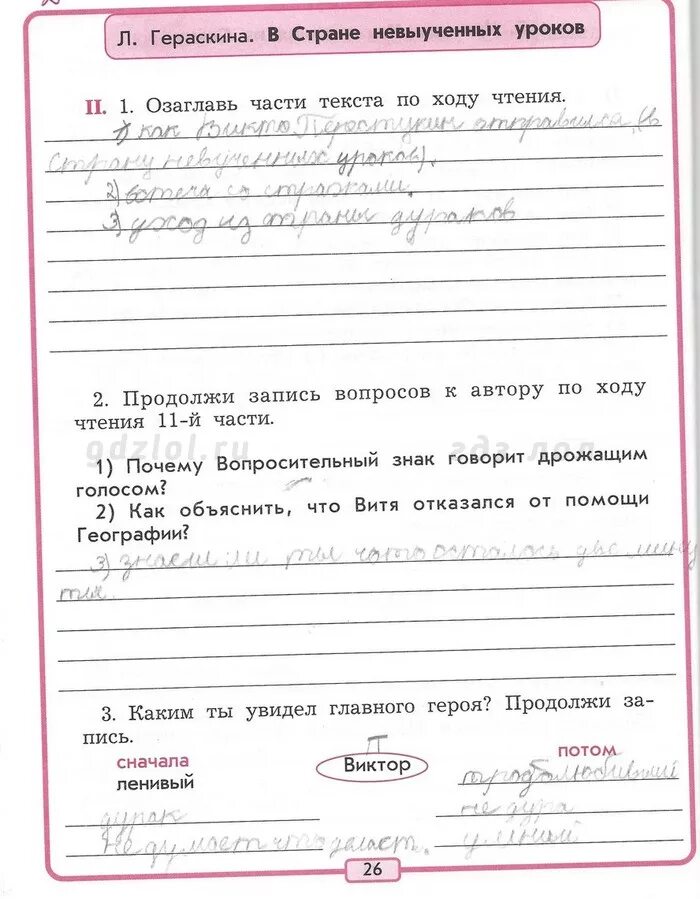 Л. Гераскина. В Стране невыученных уроков
II. 1. Озаглавь части текста по ходу чтения.
1) как Викто Перестукин отправился (в
Страну невученных уроков).
2) встеча со стражами.
3) уход из траны дураков
2. Продолжи запись вопросов к автору по ходу
чтения 11-й части.
gdzlol.ru гдз лол
1) Почему Вопросительный знак говорит дрожащим
голосом?
2) Как объяснить, что Витя отказался от помощи
Географии?
3) знаеш ли ты что осталось две мину
ты.
3. Каким ты увидел главного героя? Продолжи за-
пись.
сначала П потом
ленивый Виктор трудолюбивый
дурак не дура
не думает что делает. умный
26